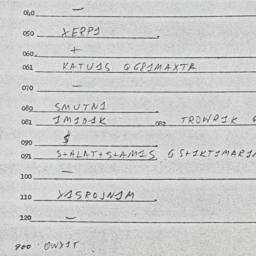 040 —
050 XEPP1
+
060
061 KATU1S QG81MAXTR
070 —
080 SMUTN1
081 1M1D1K 082 TROWR1K G
090 $
091 S+ALAT+S+AM1S GS+1KT1MAR1
100 —
110 X1SROJN1M
120 —
900 OWX1T